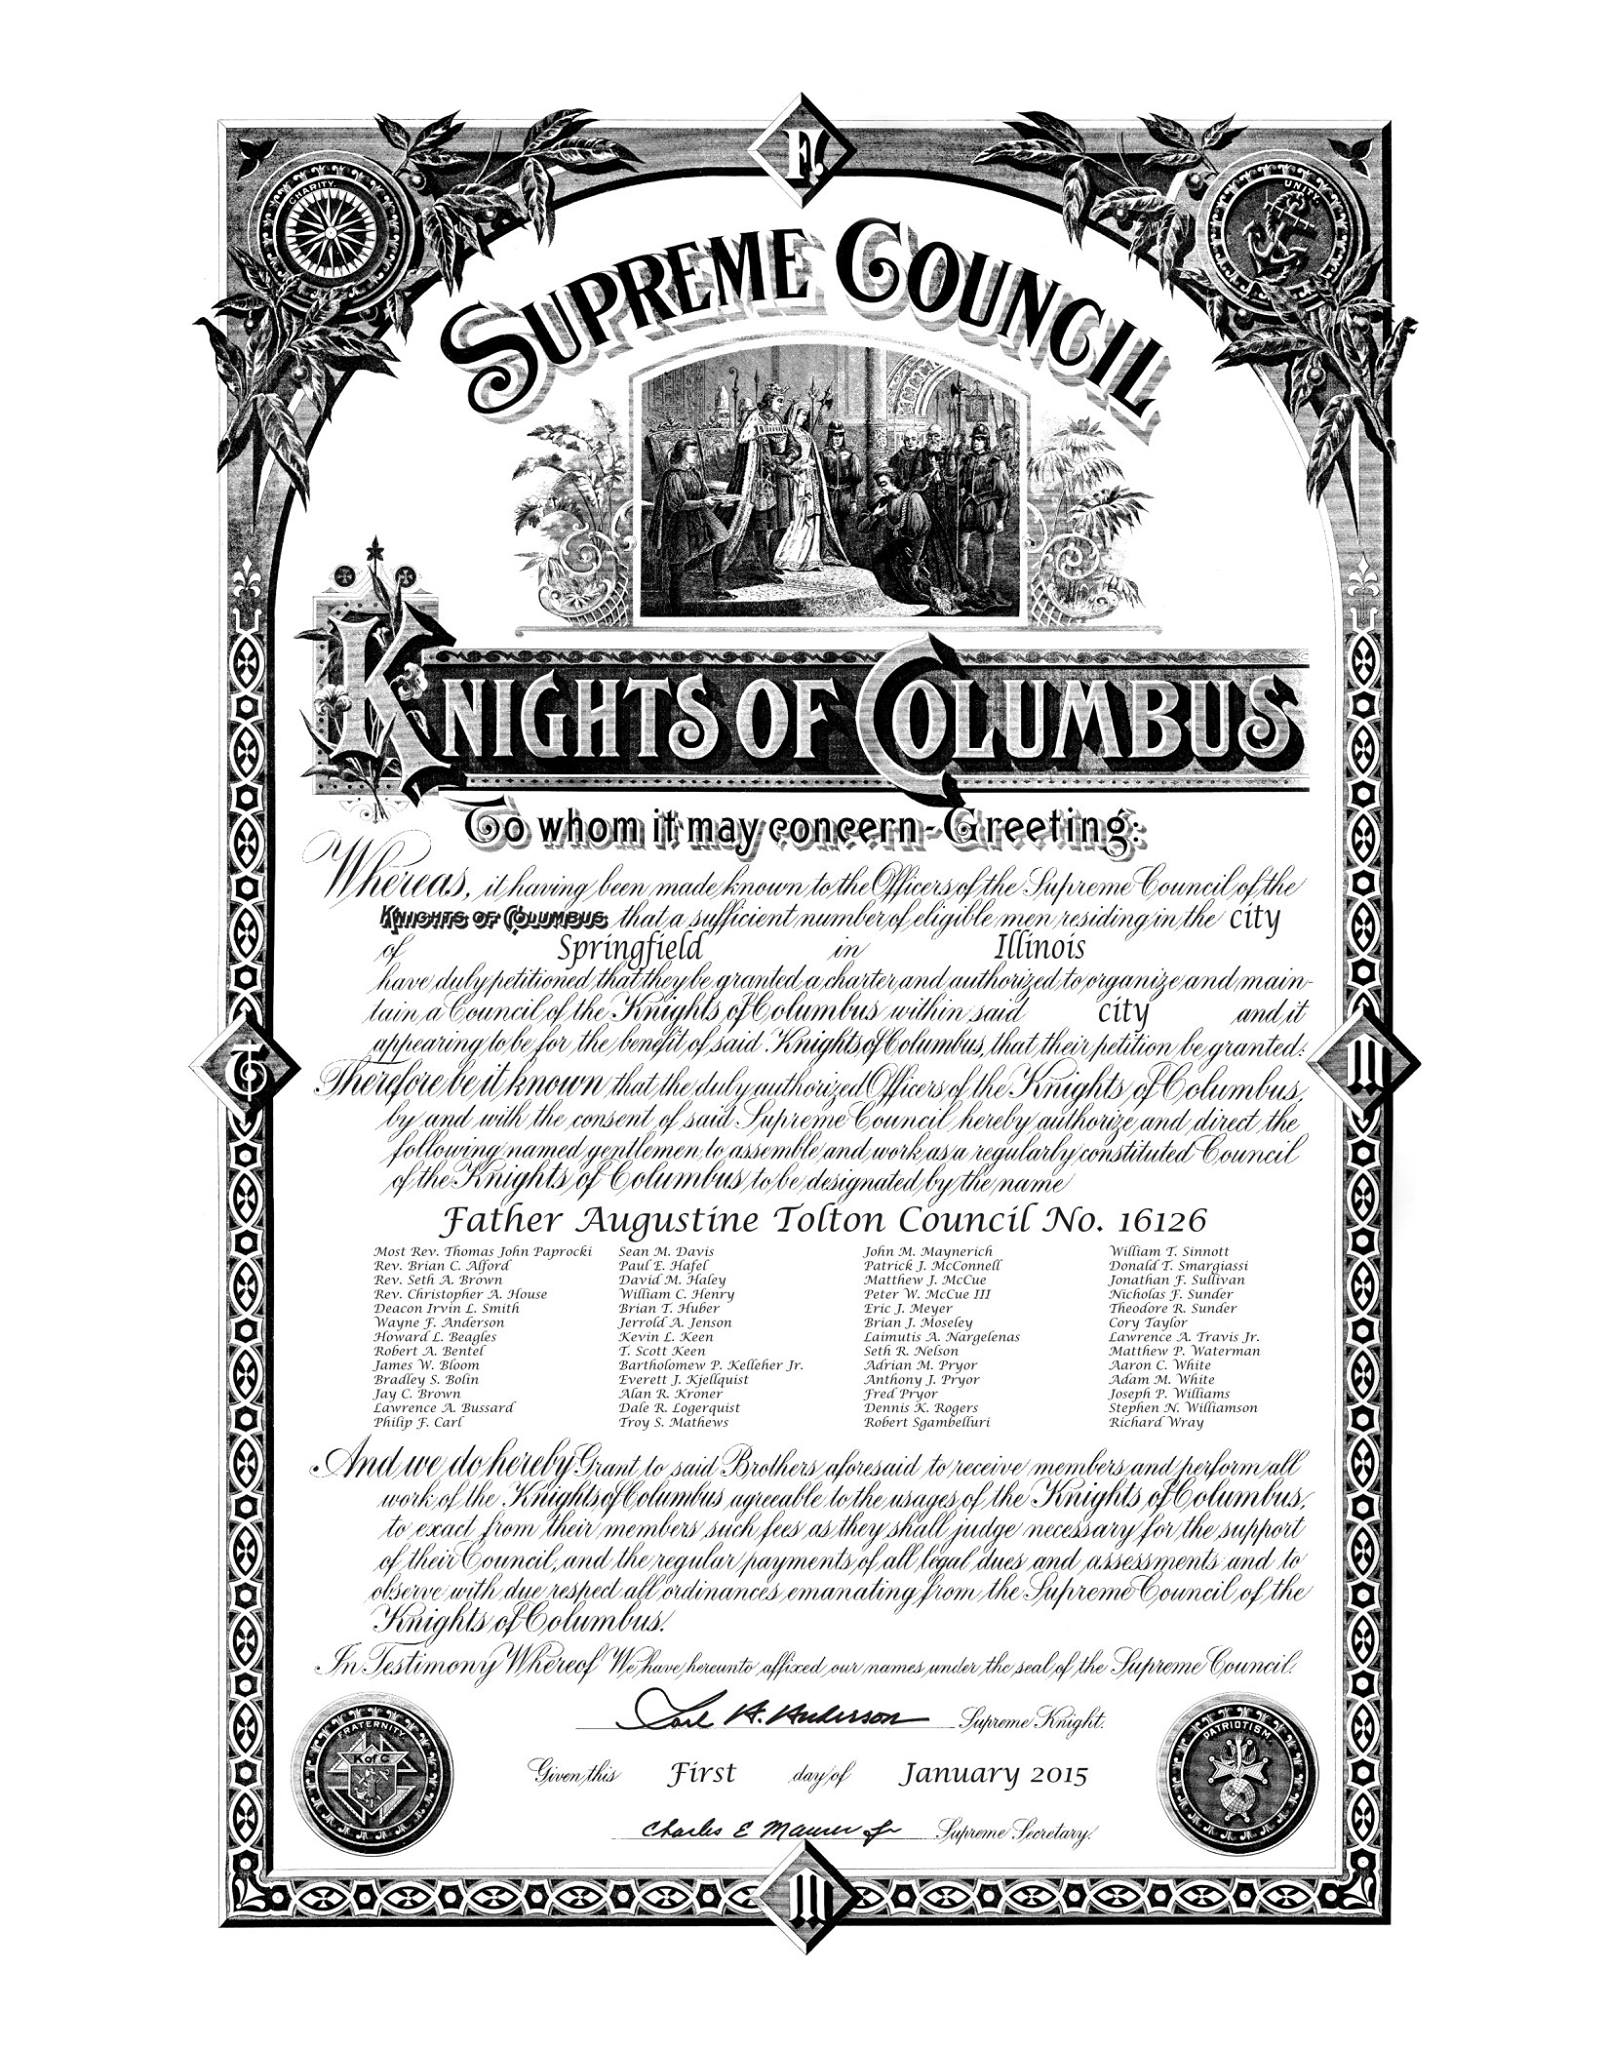 F.
CHARITY.
UNITY.
SUPREME COUNCIL
KNIGHTS OF COLUMBUS
To whom it may concern-Greeting:
Whereas, it having been made known to the Officers of the Supreme Council of the
KNIGHTS OF COLUMBUS that a sufficient number of eligible men residing in the city
of Springfield in Illinois
have duly petitioned that they be granted a charter and authorized to organize and main-
tain a Council of the Knights of Columbus within said city and it
appearing to be for the benefit of said Knights of Columbus, that their petition be granted:
Therefore be it known that the duly authorized Officers of the Knights of Columbus,
by and with the consent of said Supreme Council hereby authorize and direct the
following named gentlemen to assemble and work as a regularly constituted Council
of the Knights of Columbus to be designated by the name
Father Augustine Tolton Council No. 16126
Most Rev. Thomas John Paprocki Sean M. Davis John M. Maynerich William T. Sinnott
Rev. Brian C. Alford Paul E. Hafel Patrick J. McConnell Donald T. Smargiassi
Rev. Seth A. Brown David M. Haley Matthew J. McCue Jonathan F. Sullivan
Rev. Christopher A. House William C. Henry Peter W. McCue III Nicholas F. Sunder
Deacon Irvin L. Smith Brian T. Huber Eric J. Meyer Theodore R. Sunder
Wayne F. Anderson Jerrold A. Jenson Brian J. Moseley Cory Taylor
Howard L. Beagles Kevin L. Keen Laimutis A. Nargelenas Lawrence A. Travis Jr.
Robert A. Bentel T. Scott Keen Seth R. Nelson Matthew P. Waterman
James W. Bloom Bartholomew P. Kelleher Jr. Adrian M. Pryor Aaron C. White
Bradley S. Bolin Everett J. Kjellquist Anthony J. Pryor Adam M. White
Jay C. Brown Alan R. Kroner Fred Pryor Joseph P. Williams
Lawrence A. Bussard Dale R. Logerquist Dennis K. Rogers Stephen N. Williamson
Philip F. Carl Troy S. Mathews Robert Sgambelluri Richard Wray
And we do hereby Grant to said Brothers aforesaid to receive members and perform all
work of the Knights of Columbus agreeable to the usages of the Knights of Columbus,
to exact from their members such fees as they shall judge necessary for the support
of their Council, and the regular payments of all legal dues and assessments and to
observe with due respect all ordinances emanating from the Supreme Council of the
Knights of Columbus.
In Testimony Whereof We have hereunto affixed our names under the seal of the Supreme Council.
Carl A. Anderson Supreme Knight.
FRATERNITY.
K of C
PATRIOTISM.
Given this First day of January 2015
Charles E Maurer Jr Supreme Secretary.